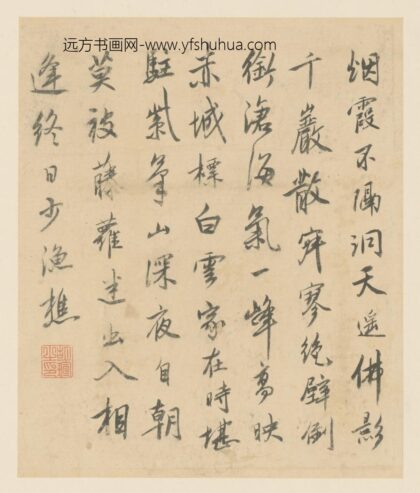 远方书画网-www.yfshuhua.com
烟霞不隔洞天遥佛影
千巖散寂寥絶壁倒
銜滄海氣一峰高映
赤城標白雲家在時堪
駐紫山深夜自朝
莫被藤蘿迷出入相
逢終日少漁樵